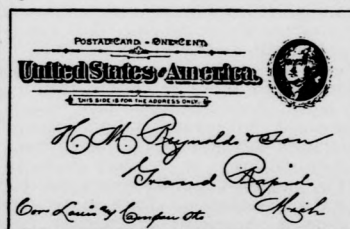 POSTAL CARD - ONE CENT.
United States of America.
THIS SIDE IS FOR THE ADDRESS ONLY.
H. M. Reynolds & Son
Grand Rapids
Mich
Cor Louis & Campau Sts